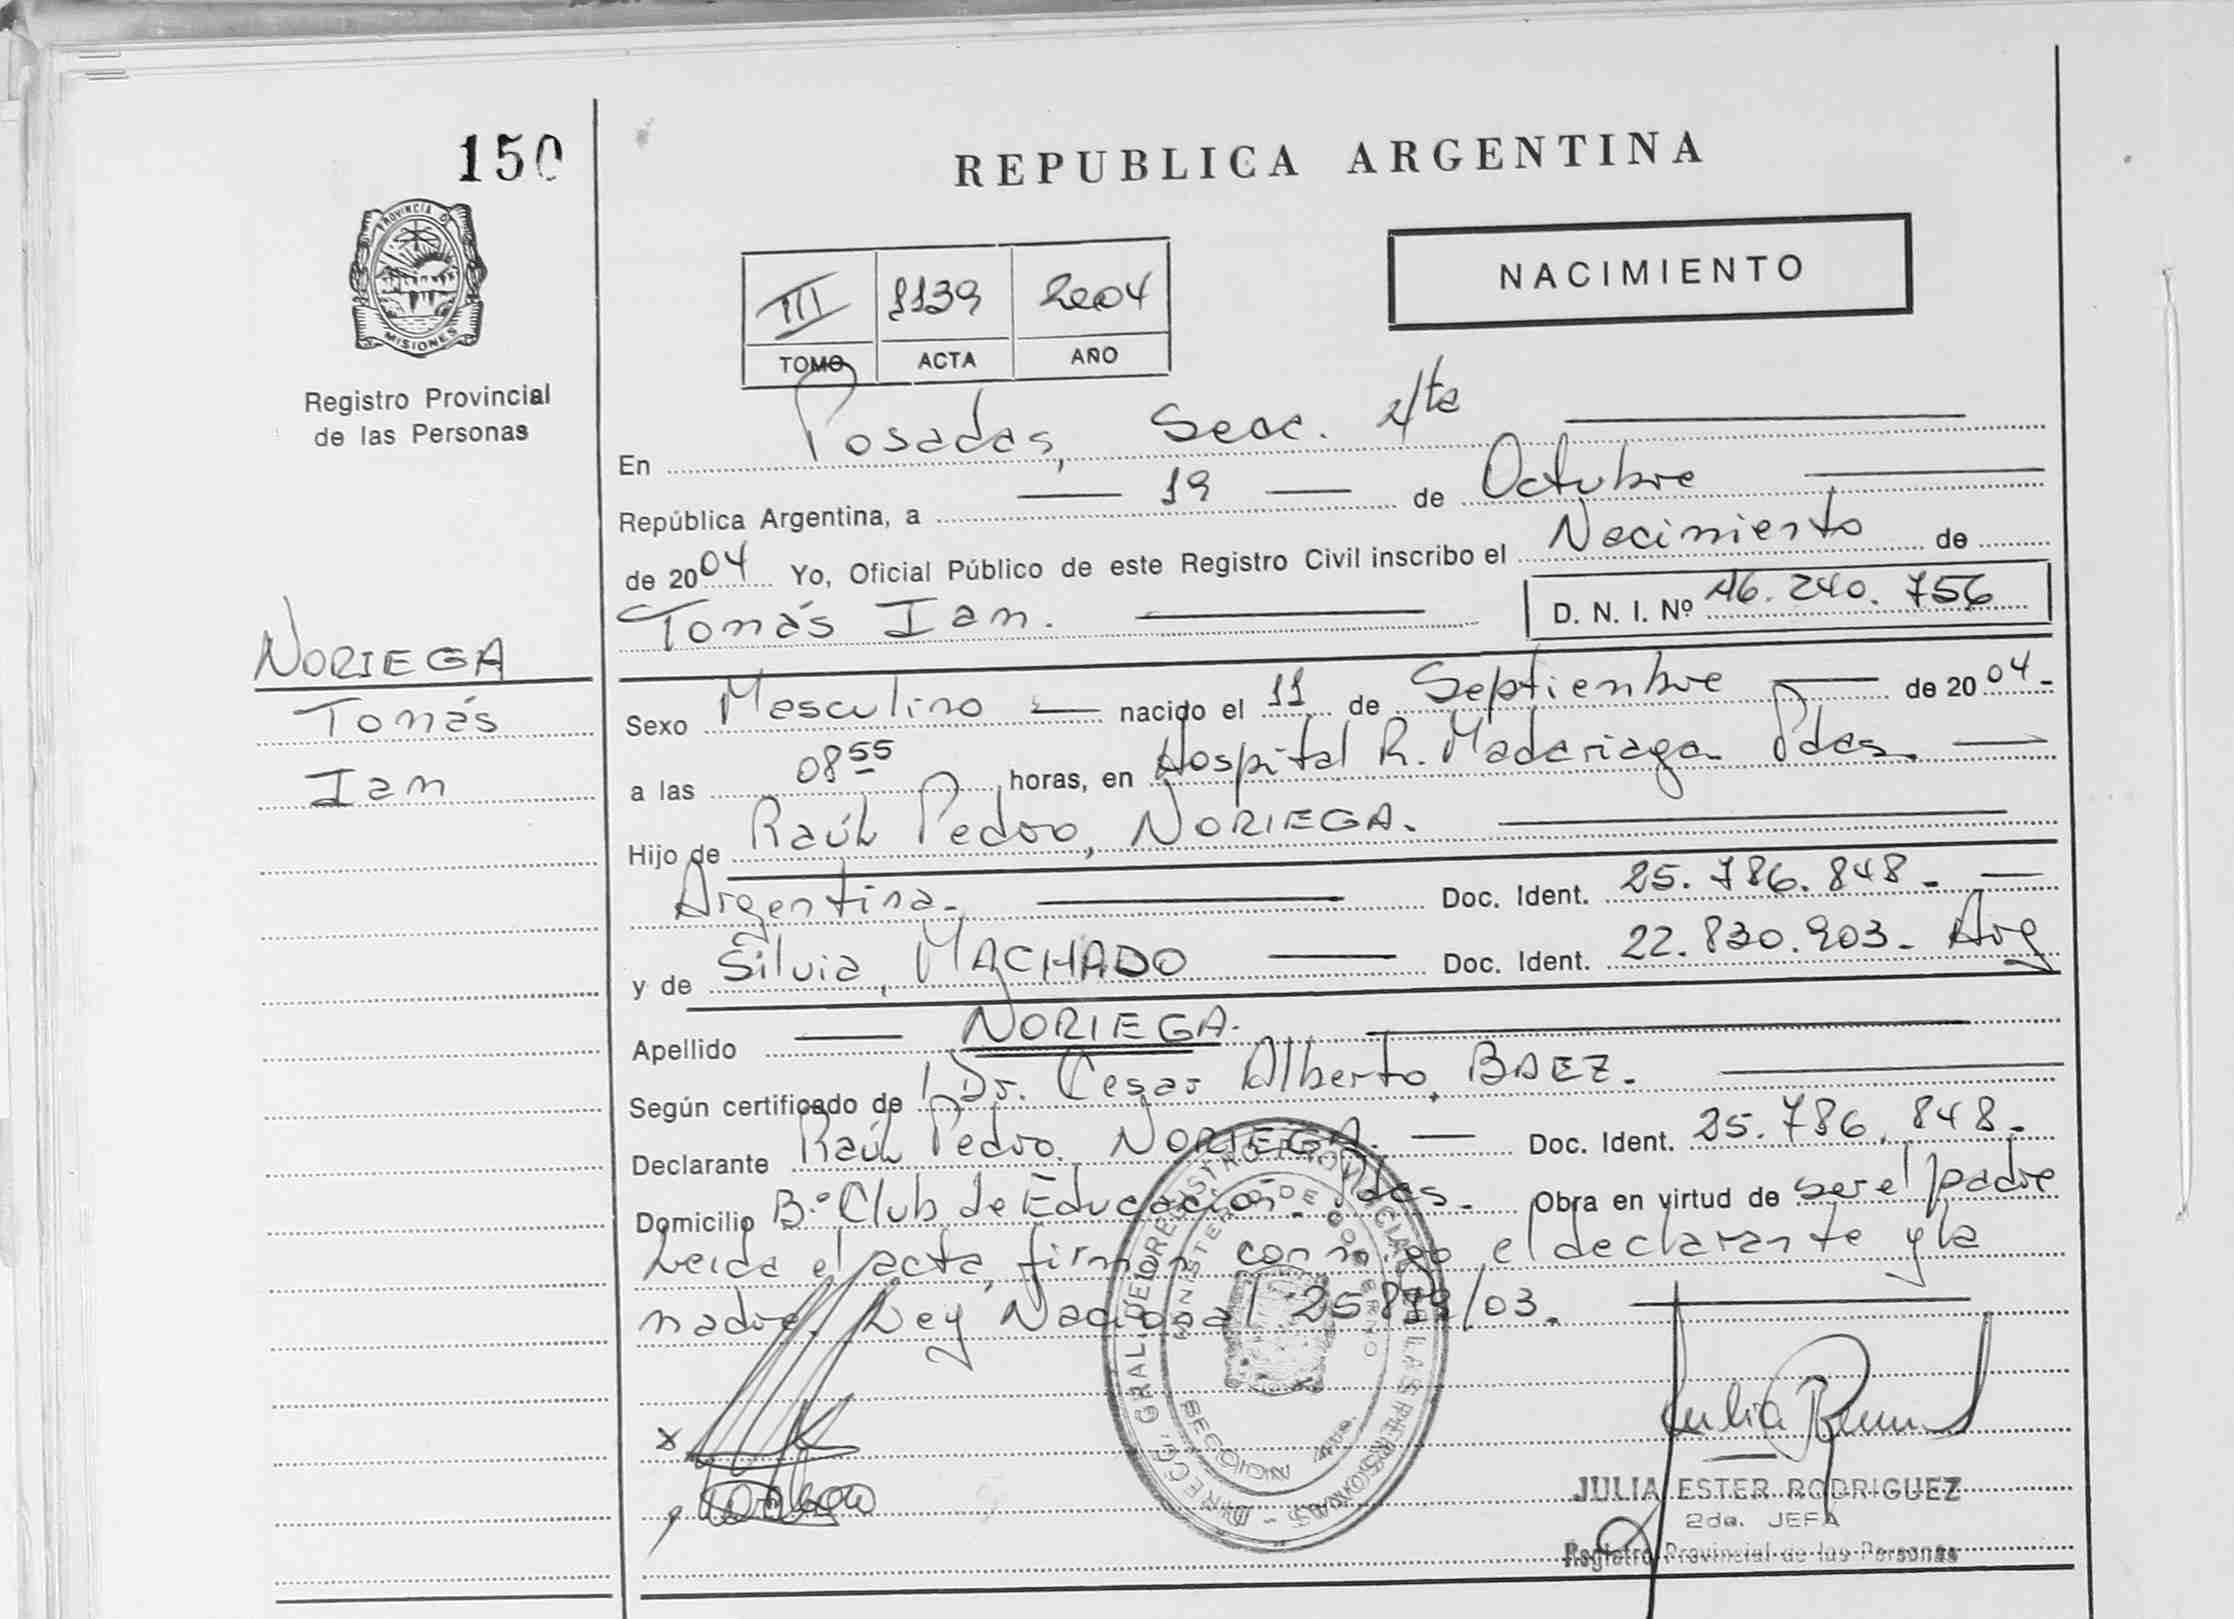 150
REPUBLICA ARGENTINA
PROVINCIA D
MISIONES
Registro Provincial
de las Personas
III 1139 2004
TOMO ACTA AÑO
NACIMIENTO
En Posadas, Secc. 4ta
República Argentina, a 19 de Octubre
de 2004 Yo, Oficial Público de este Registro Civil inscribo el Nacimiento de
Tomás Ian. D. N. I. Nº 46.240.756
NORIEGA
Tomás
Ian
Sexo Masculino nacido el 11 de Septiembre de 2004-
a las 08 55 horas, en Hospital R. Madariaga Pdas.
Hijo de Raúl Pedro, NORIEGA.
Argentina- Doc. Ident. 25.786.848-
y de Silvia, MACHADO Doc. Ident. 22.830.903- Arg
Apellido NORIEGA.
Según certificado de Dr. Cesar Alberto, BAEZ.
Declarante Raúl Pedro, NORIEGA. Doc. Ident. 25.786.848-
Domicilio B° Club de Educación- Pdas- Obra en virtud de ser el padre
Leida el acta, firman conmigo el declarante y la
madre. Ley Nacional 25819/03.
DIRECC. GRAL. DEL REGISTRO PROVINCIAL DE LAS PERSONAS
MINISTERIO DE GOBIERNO
SECCION 4ta.
x
JULIA ESTER RODRIGUEZ
2da. JEFA
Registro Provincial de las Personas